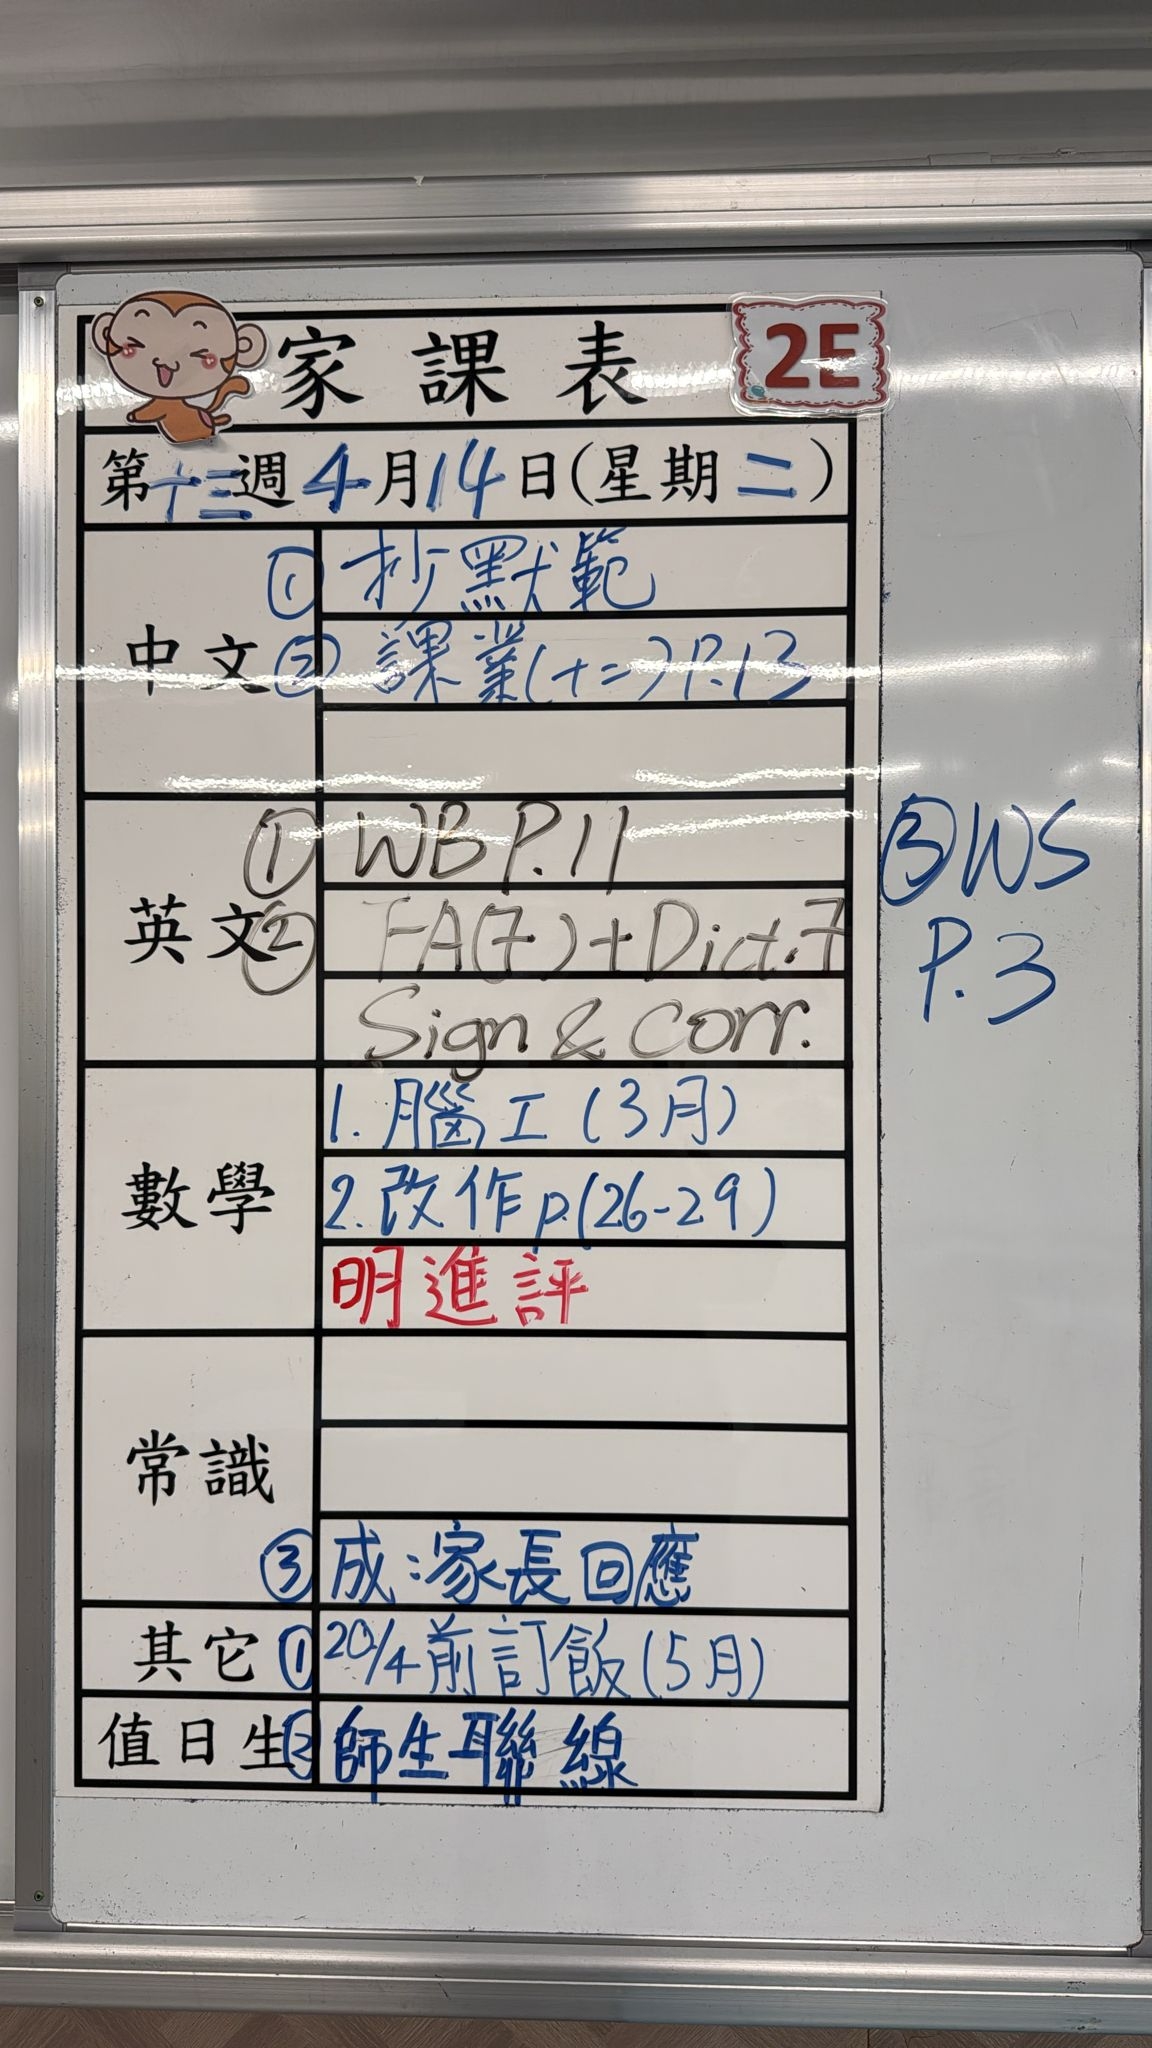 家課表 2E
第十三週4月14日(星期二)
中文
① 抄默範
② 課業(十二)P.13
英文
① WB P.11
② FA(7)+Dict.7
Sign & Corr.
③ WS
P.3
數學
1. 腦工(3月)
2. 改作p.(26-29)
明進評
常識
③ 成:家長回應
其它 ① 20/4前訂飯(5月)
值日生 ② 師生聯線